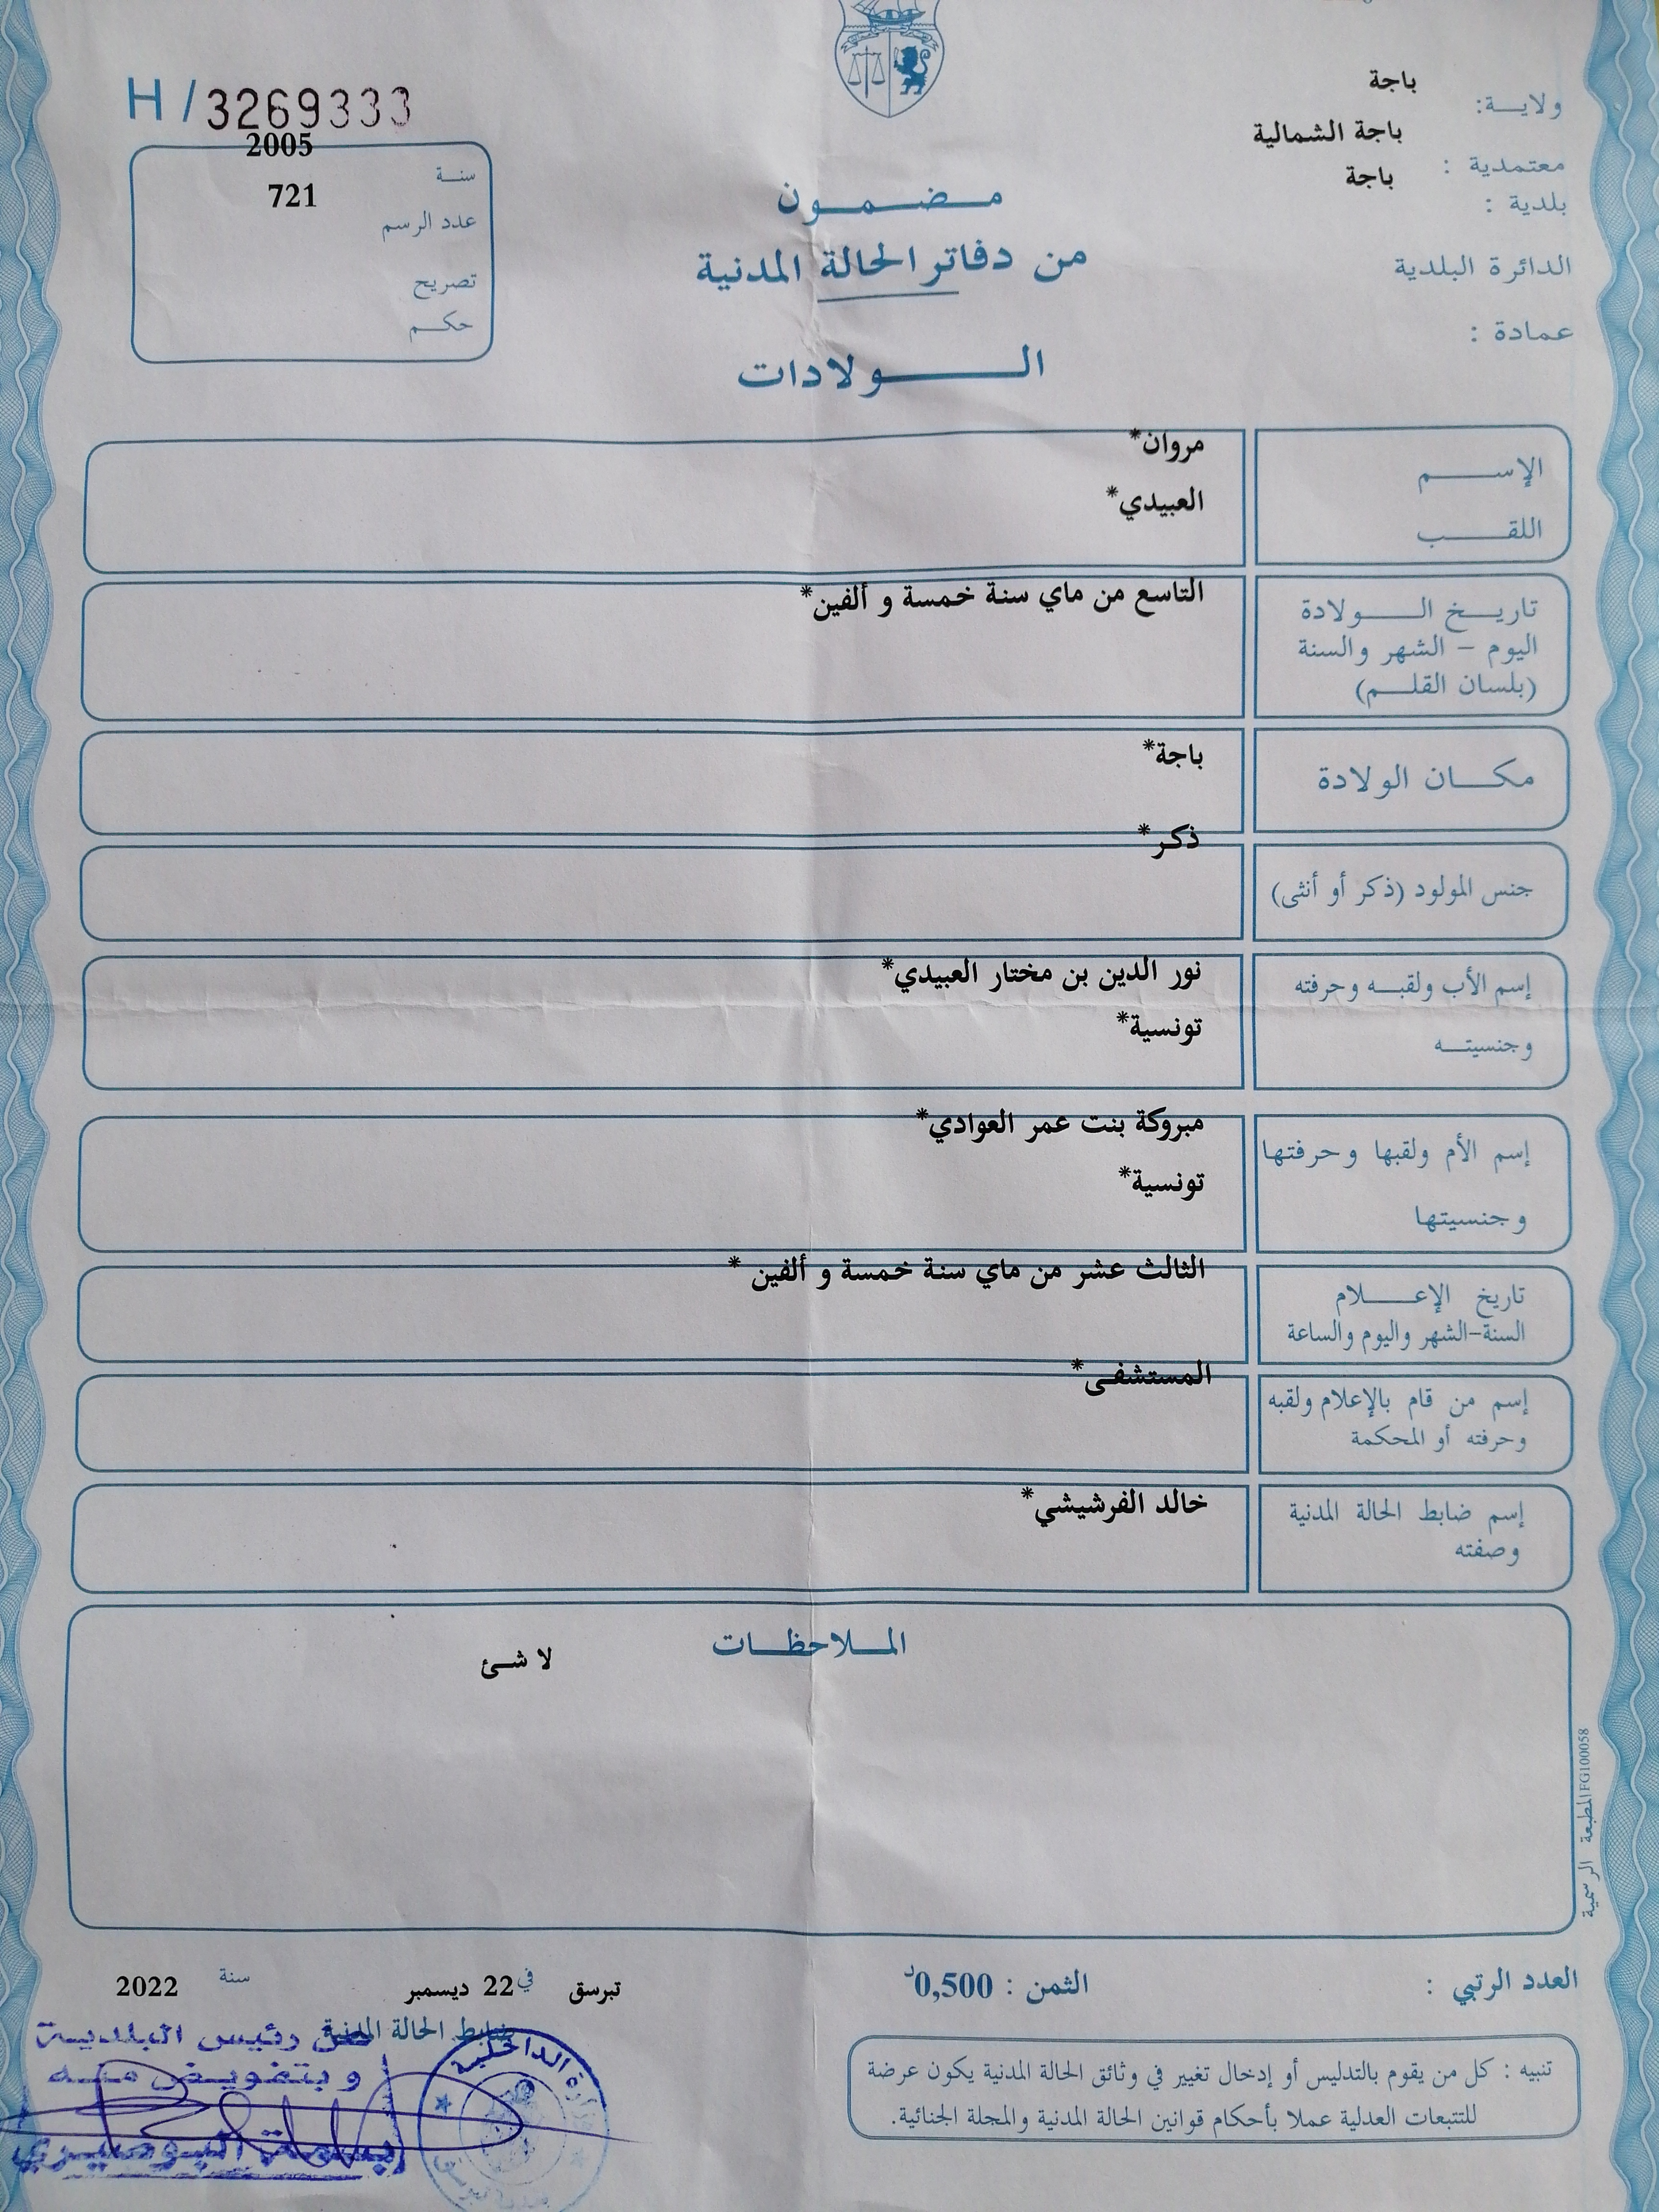 H / 3269333
ولايـــة: باجة
معتمدية : باجة الشمالية
بلدية : باجة
الدائرة البلدية
عمادة :
سنــة 2005
عدد الرسم 721
تصريح
حكــم
مـضـمـون
من دفاتر الحالة المدنية
الــولادات
الإســـم مروان*
اللقـــب العبيدي*
تاريــخ الــولادة التاسع من ماي سنة خمسة و ألفين*
اليوم – الشهر والسنة
(بلسان القلــم)
مكــان الولادة باجة*
جنس المولود (ذكر أو أنثى) ذكر*
إسم الأب ولقبــه وحرفته نور الدين بن مختار العبيدي*
وجنسيتــه تونسية*
إسم الأم ولقبها وحرفتها مبروكة بنت عمر العوادي*
وجنسيتها تونسية*
تاريخ الإعــلام الثالث عشر من ماي سنة خمسة و ألفين *
السنة-الشهر واليوم والساعة
إسم من قام بالإعلام ولقبه المستشفى*
وحرفته أو المحكمة
إسم ضابط الحالة المدنية خالد الفرشيشي*
وصفته
المــلاحظــات
لا شئ
المطبعة الرسمية FG100058
العدد الرتبي :
الثمن : 0,500د
تبرسق في 22 ديسمبر سنة 2022
ضابط الحالة المدنية
عن رئيس البلديـة
وبتفويـض منـه
بسمة البوصيري
وزارة الداخلية
تنبيه : كل من يقوم بالتدليس أو إدخال تغيير في وثائق الحالة المدنية يكون عرضة
للتتبعات العدلية عملا بأحكام قوانين الحالة المدنية والمجلة الجنائية.